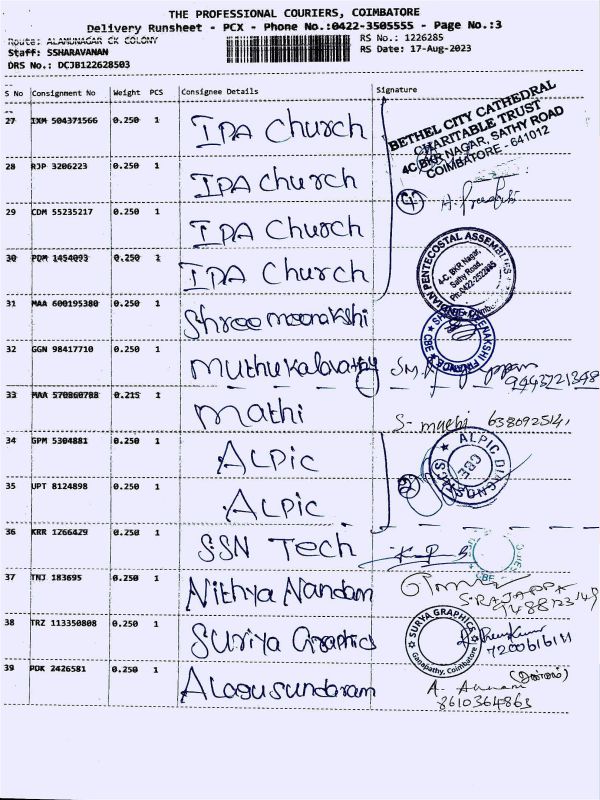 THE PROFESSIONAL COURIERS, COIMBATORE
Delivery Runsheet - PCX - Phone No.:0422-3505555 - Page No.:3
Route: ALAMUNAGAR CK COLONY
RS No.: 1226285
Staff: SSHARAVANAN
RS Date: 17-Aug-2023
DRS No.: DCJB122628503
S No Consignment No Weight PCS Consignee Details Signature
27 IXM 504371566 0.250 1 IPA Church
BETHEL CITY CATHEDRAL
CHARITABLE TRUST
4C, BKR NAGAR, SATHY ROAD
COIMBATORE - 641012
28 RJP 3206223 0.250 1 IPA Church
29 CDM 55235217 0.250 1 IPA Church
(4)
30 PDM 1454093 0.250 1 IPA Church
INDIAN PENTECOSTAL ASSEMBLIES
4-C, BKR Nagar,
Sathy Road,
Ph:0422-2522885
31 MAA 600195380 0.250 1 Shree meenakshi
CBE
32 GGN 98417710 0.250 1 Muthukalavathy
9443721348
33 MAA 570860788 0.215 1 Mathi S- mathi 6380925141
34 GPM 5304881 0.250 1 ALPic
ALPIC DIAGNOSTICS
CBE
35 UPT 8124898 0.250 1 ALPic (2)
36 KRR 1266429 0.250 1 SSN Tech
CBE
37 TNJ 183695 0.250 1 Nithya Nandam
S.RAJAPPA
38 TRZ 113350808 0.250 1 Suriya Graphics
SURYA GRAPHICS
Ganapathy, Coimbatore
39 PDK 2426581 0.250 1 Alagusundaram
8610364863